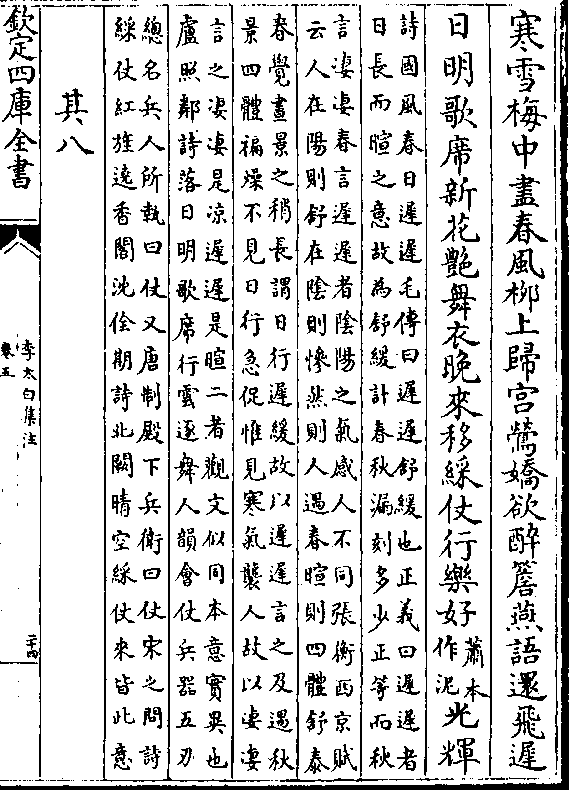 寒雪梅中盡春風柳上歸宮鶯嬌欲醉簷燕語還飛遲
日明歌席新花艷舞衣晚來移綵仗行樂好蕭本作泥光輝
詩國風春日遲遲毛傳曰遲遲舒緩也正義曰遲遲者
日長而暄之意故為舒緩計春秋漏刻多少正等而秋
言淒淒春言遲遲者陰陽之氣感人不同張衡西京賦
云人在陽則舒在陰則慘然則人遇春暄則四體舒泰
春覺晝景之稍長謂日行遲緩故以遲遲言之及遇秋
景四體褊燥不見日行急促惟見寒氣襲人故以淒淒
言之淒淒是凉遲遲是暄二者觀文似同本意實異也
盧照鄰詩落日明歌席行雲逐舞人韻會仗兵器五刃
總名兵人所執曰仗又唐制殿下兵衛曰仗宋之問詩
綵仗紅旌遶香閣沈佺期詩北闕晴空綵仗來皆此意
其八
欽定四庫全書
李太白集注
卷五
二十四